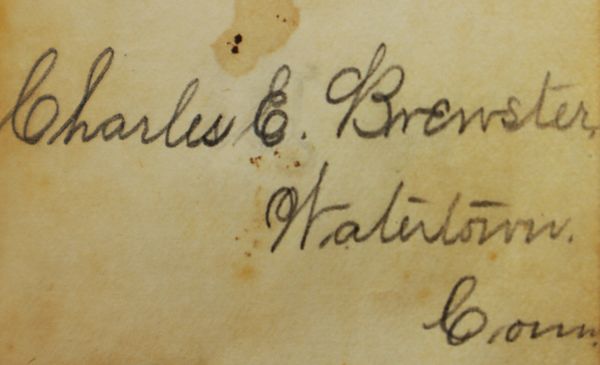 Charles E. Brewster,
Watertown.
Conn.